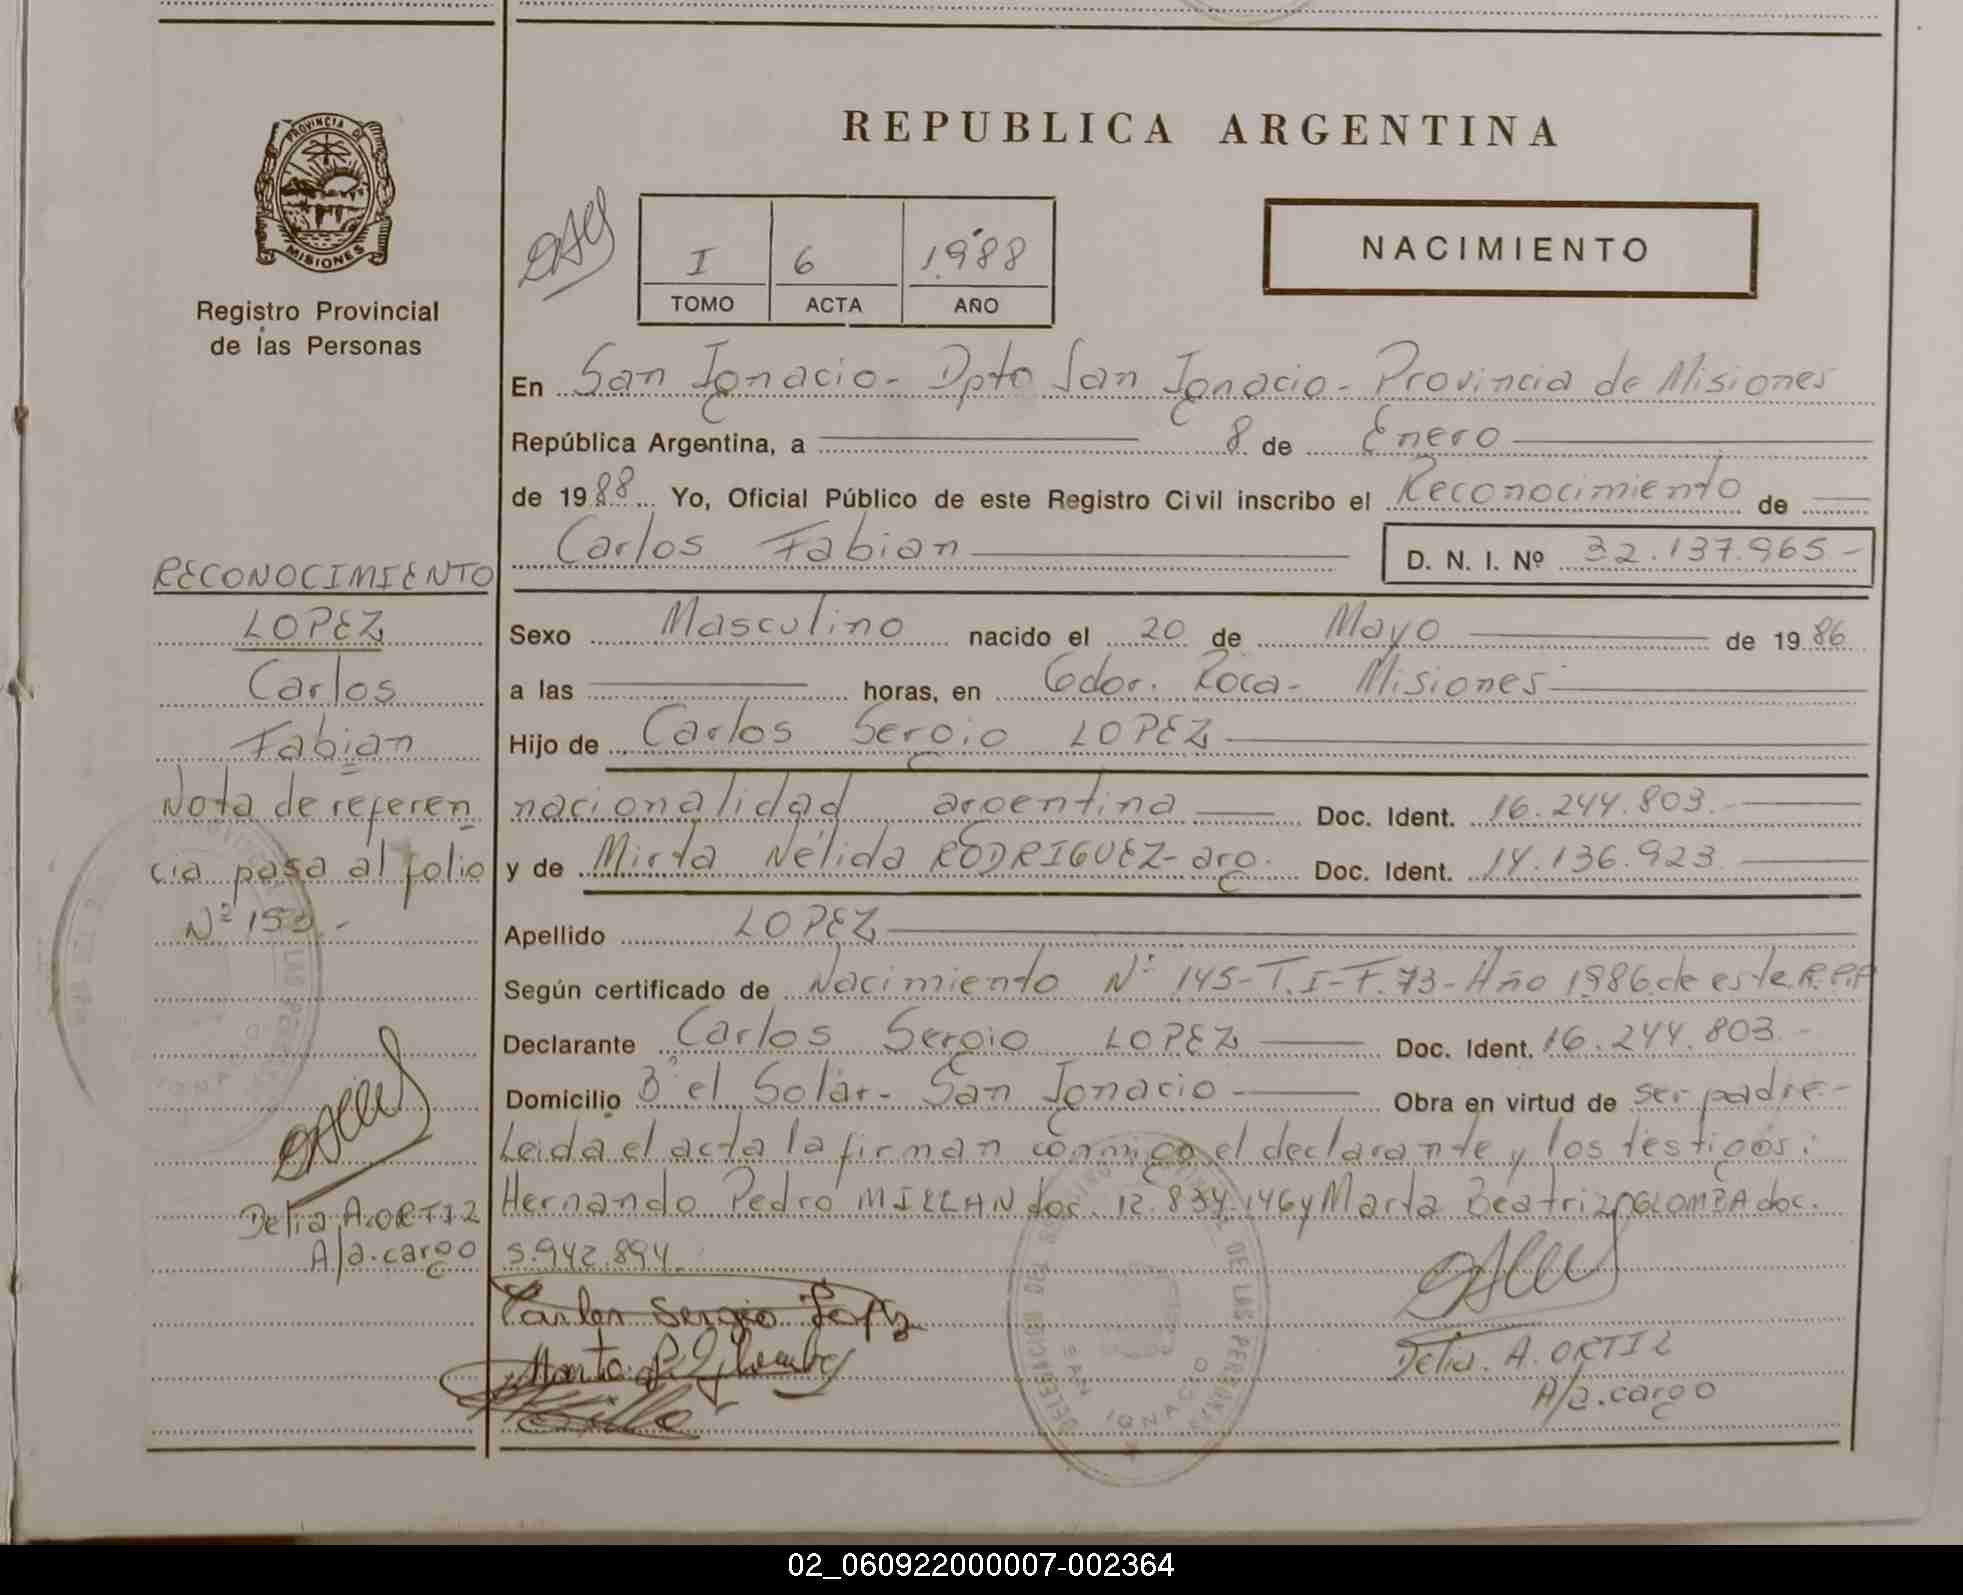 PROVINCIA DE
MISIONES
Registro Provincial
de las Personas
REPUBLICA ARGENTINA
NACIMIENTO
I 6 1988
TOMO ACTA AÑO
En San Ignacio - Dpto San Ignacio - Provincia de Misiones
República Argentina, a 8 de Enero
de 1988 Yo, Oficial Público de este Registro Civil inscribo el Reconocimiento de
Carlos Fabian D. N. I. Nº 32.137.965-
Sexo Masculino nacido el 20 de Mayo de 1986
a las horas, en Gdor. Roca - Misiones
Hijo de Carlos Sergio LOPEZ
nacionalidad argentina Doc. Ident. 16.244.803.
y de Mirta Nélida RODRIGUEZ - arg. Doc. Ident. 14.136.923
Apellido LOPEZ
Según certificado de Nacimiento Nº 145-T.I-F.73-Año 1986 de este R.P.P
Declarante Carlos Sergio LOPEZ Doc. Ident. 16.244.803.-
Domicilio Bº el Solar - San Ignacio Obra en virtud de ser padre-
Leida el acta la firman conmigo el declarante y los testigos:
Hernando Pedro MILLAN doc. 12.834.146 y Marta Beatriz doc.
5.942.894.
Carlos Sergio Lopez
Delia. A. ORTIZ
A/a. cargo
RECONOCIMIENTO
LOPEZ
Carlos
Fabian
Nota de referen
cia pasa al folio
Nº 153.-
Delia A. ORTIZ
A/a. cargo
DELEGACION DEL REGISTRO PROVINCIAL DE LAS PERSONAS
SAN IGNACIO
02_060922000007-002364